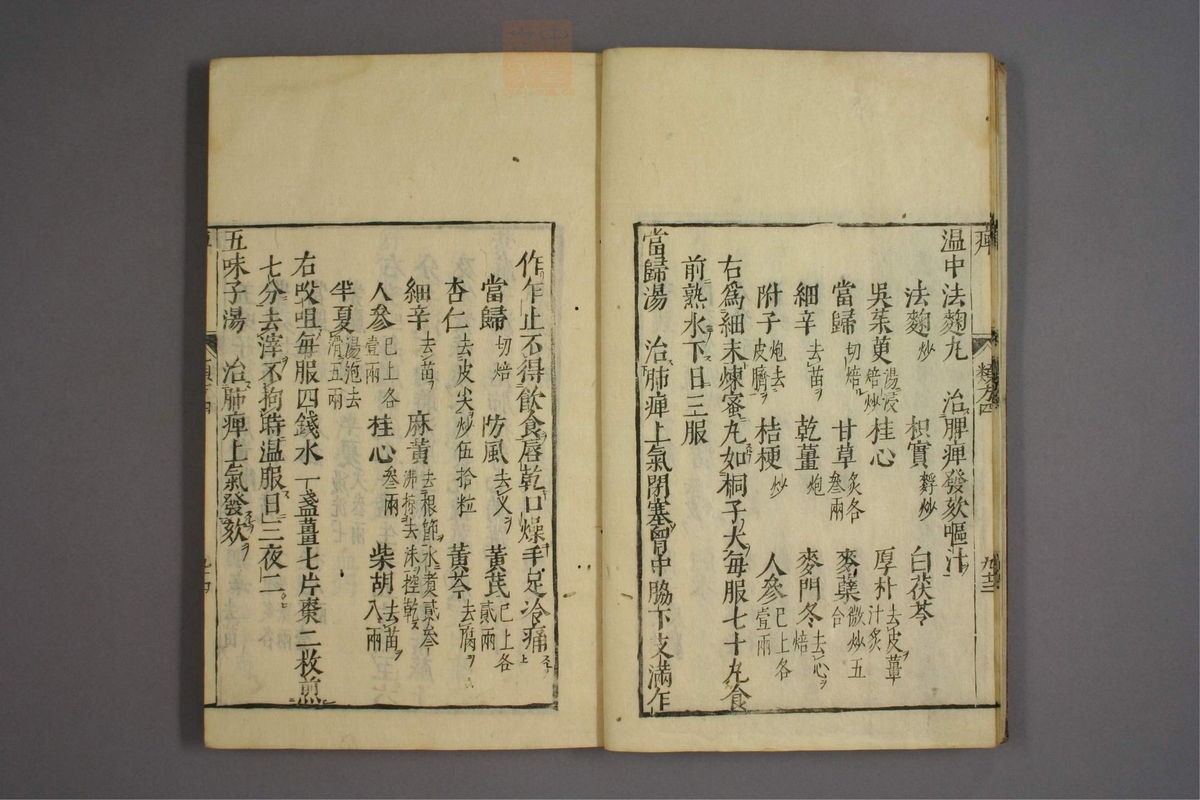 痺 類分四 九十三
温中法麴丸 治脾痺發欬嘔汁
法麴炒 枳實麩炒 白茯苓
吳茱萸湯浸焙炒 桂心 厚朴去皮薑汁炙
當歸切焙 甘草炙各叁兩 麥蘖微炒五合
細辛去苗 乾薑炮 麥門冬去心焙
附子炮去皮臍 桔梗炒 人參已上各壹兩
右爲細末煉蜜丸如桐子大每服七十丸食
前熟水下日三服
當歸湯 治肺痺上氣閉塞胷中脇下支滿乍
作乍止不得飲食唇乾口燥手足冷痛
當歸切焙 防風去叉 黃芪已上各貳兩
杏仁去皮尖炒伍拾粒 黃芩去腐
細辛去苗 麻黃去根節水煑貳叁沸掠去沫控乾
人參已上各壹兩 桂心叁兩 柴胡八兩去苗
半夏湯炮去滑五兩
右㕮咀每服四錢水一盞薑七片棗二枚煎
七分去滓不拘時温服日三夜二
五味子湯 治肺痺上氣發欬